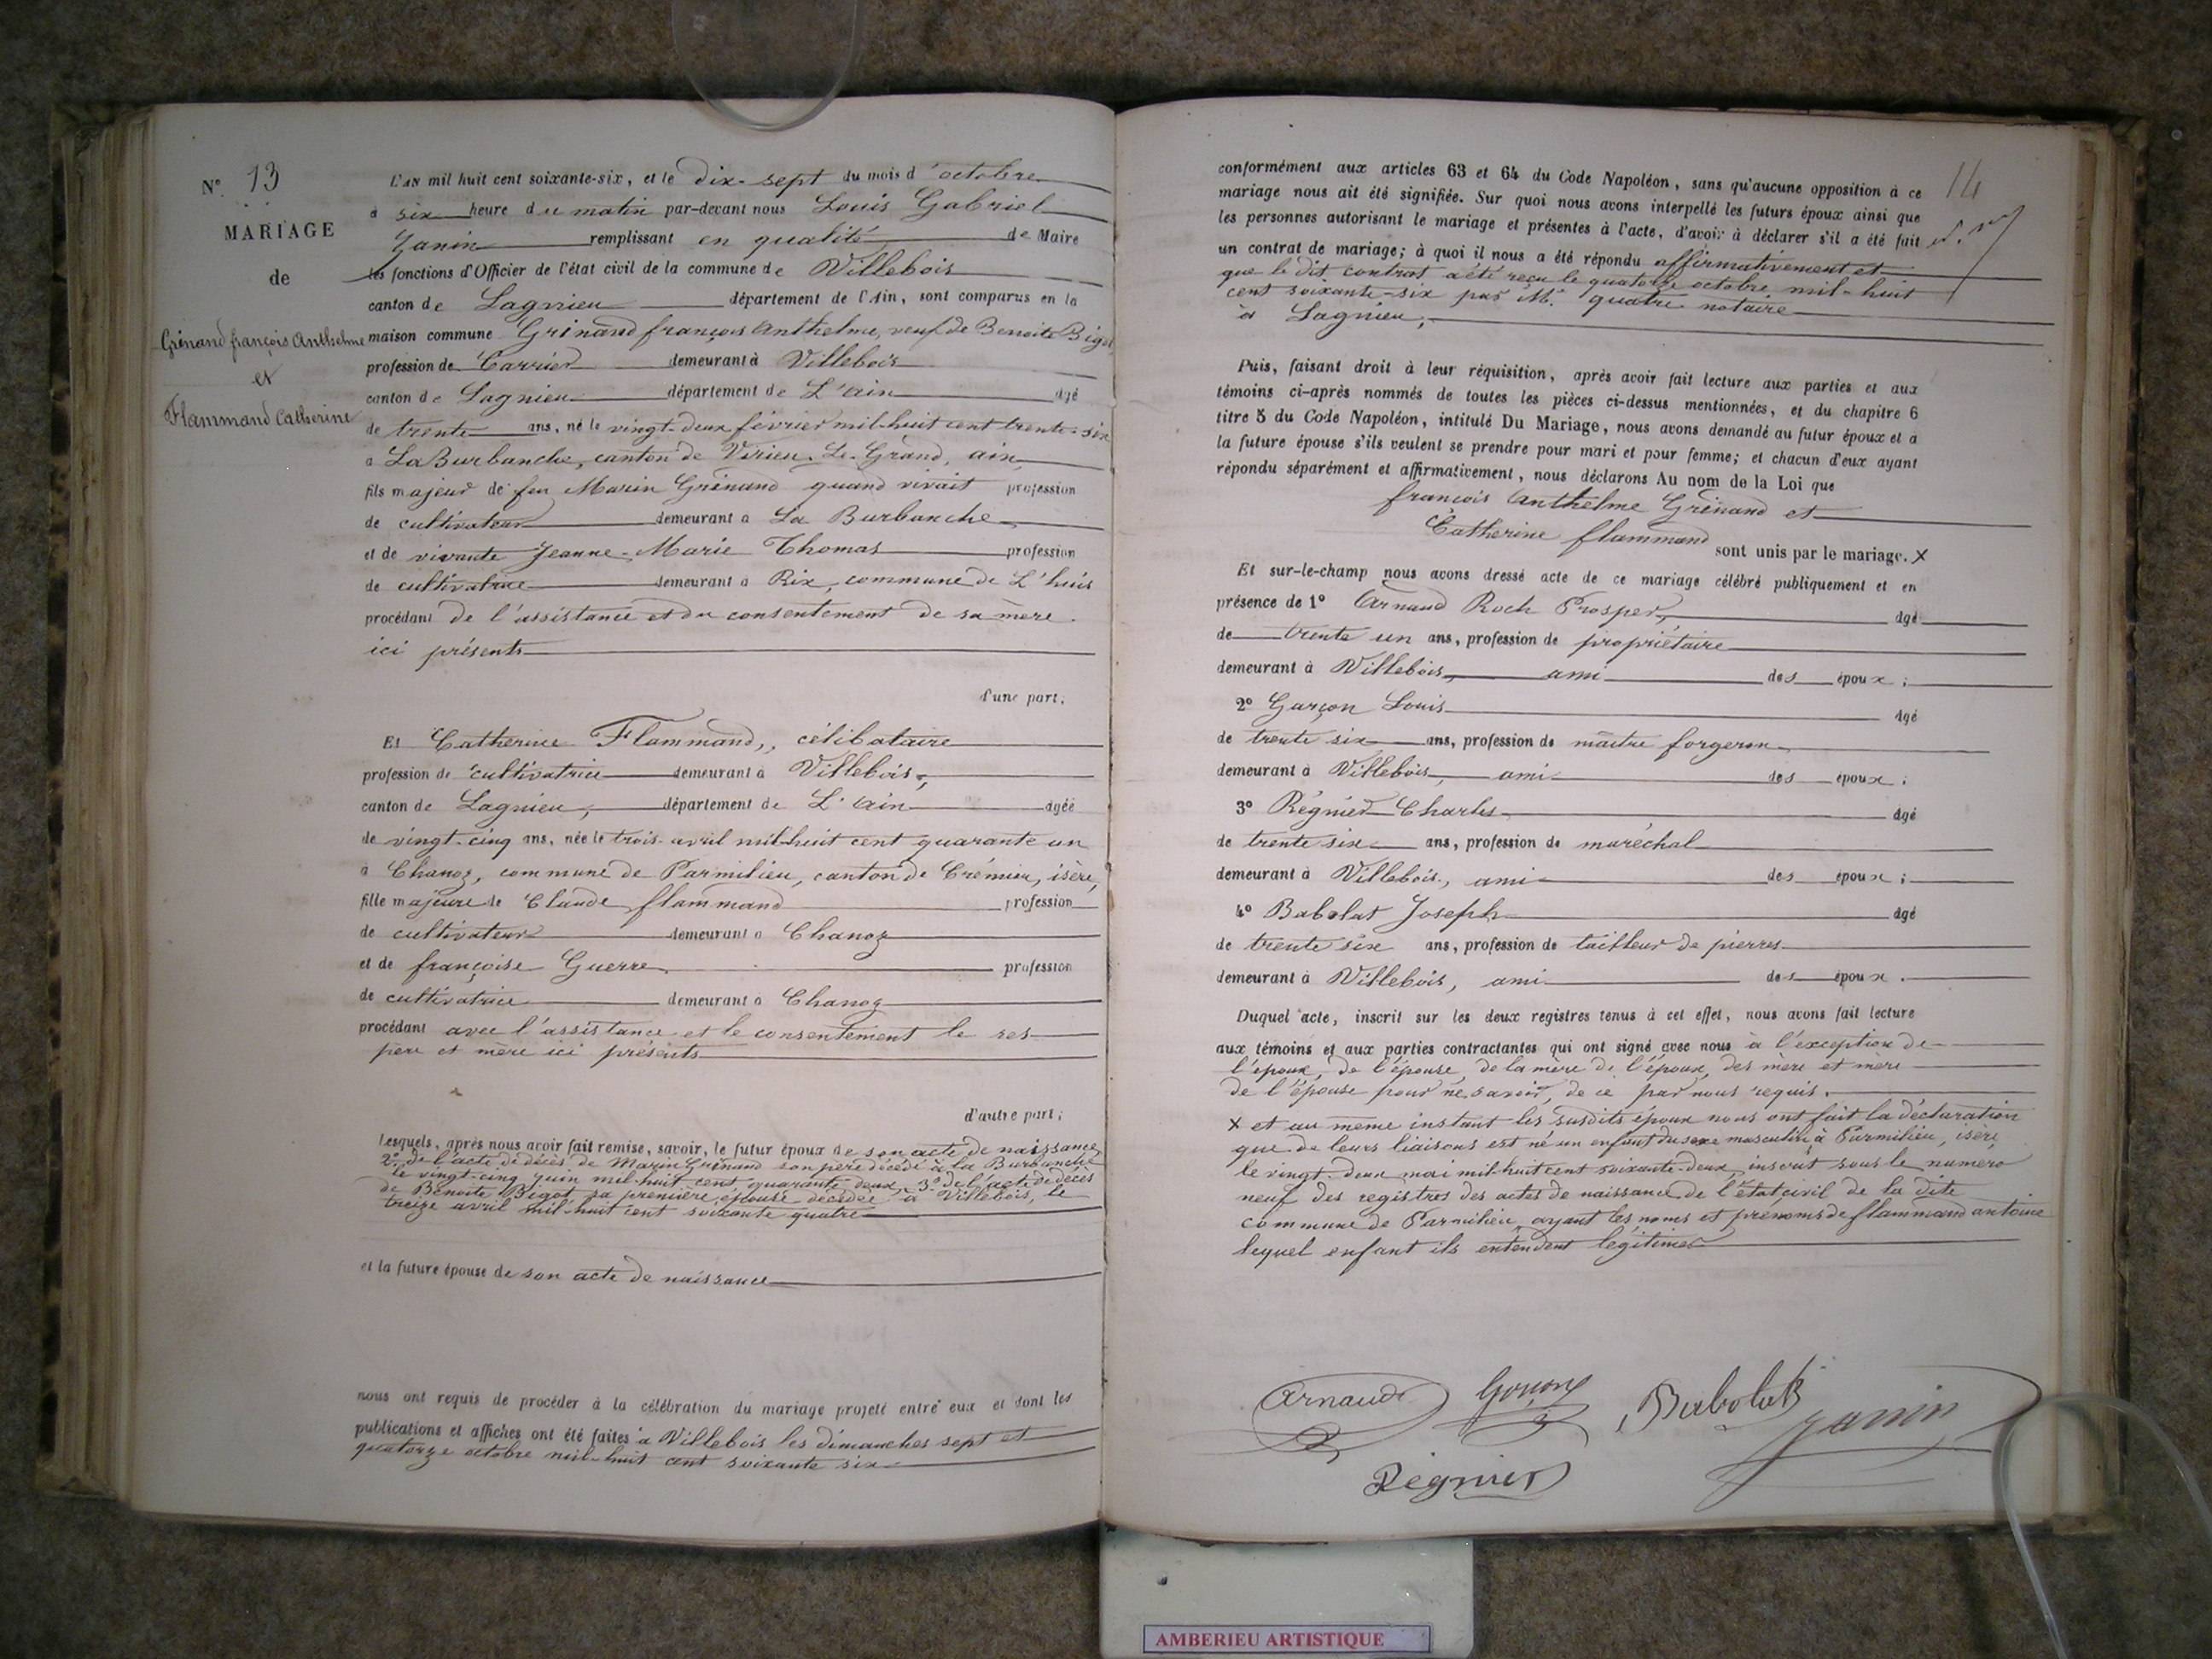 N° 13
MARIAGE
de
Grinand françois Anthelme
et
Flammand Catherine
L'AN mil huit cent soixante-six, et le dix-sept du mois d'octobre
à six heure du matin par-devant nous Louis Gabriel
Janin remplissant en qualité de Maire
les fonctions d'Officier de l'état civil de la commune de Villebois
canton de Lagnieu département de l'Ain, sont comparus en la
maison commune Grinand françois Anthelme, veuf de Benoite Bigot,
profession de Carrier demeurant à Villebois
canton de Lagnieu département de L'ain âgé
de trente ans, né le vingt-deux février mil-huit cent trente-six
à La Burbanche, canton de Virieu-Le-Grand, ain,
fils majeur de feu Marin Grinand quand vivait profession
de cultivateur demeurant à La Burbanche
et de vivante Jeanne-Marie Thomas profession
de cultivatrice demeurant à Rix, commune de L'huis
procédant de l'assistance et du consentement de sa mère
ici présente
d'une part;
Et Catherine Flammand, célibataire
profession de cultivatrice demeurant à Villebois,
canton de Lagnieu, département de L'Ain âgée
de vingt-cinq ans, née le trois avril mil-huit cent quarante un
à Chanoz, commune de Parmilieu, canton de Crémieu, isère,
fille majeure de Claude flammand profession
de cultivateur demeurant à Chanoz
et de françoise Guerre profession
de cultivatrice demeurant à Chanoz
procédant avec l'assistance et le consentement le ses
père et mère ici présents
d'autre part;
Lesquels, après nous avoir fait remise, savoir, le futur époux de son acte de naissance
2° de l'acte de décès de Marin Grinand son père décédé à la Burbanche
le vingt-cinq juin mil-huit cent quarante deux, 3° de l'acte de décès
de Benoite Bigot sa première épouse décédée à Villebois, le
treize avril mil-huit cent soixante quatre
et la future épouse de son acte de naissance
nous ont requis de procéder à la célébration du mariage projeté entre eux et dont les
publications et affiches ont été faites à Villebois les dimanches sept et
quatorze octobre mil-huit cent soixante six
14
conformément aux articles 63 et 64 du Code Napoléon, sans qu'aucune opposition à ce
mariage nous ait été signifiée. Sur quoi nous avons interpellé les futurs époux ainsi que
les personnes autorisant le mariage et présentes à l'acte, d'avoir à déclarer s'il a été fait
un contrat de mariage; à quoi il nous a été répondu affirmativement et
que le dit contrat a été reçu le quatorze octobre mil-huit
cent soixante-six par M. quatre notaire
à Lagnieu,
Puis, faisant droit à leur réquisition, après avoir fait lecture aux parties et aux
témoins ci-après nommés de toutes les pièces ci-dessus mentionnées, et du chapitre 6
titre 5 du Code Napoléon, intitulé Du Mariage, nous avons demandé au futur époux et à
la future épouse s'ils veulent se prendre pour mari et pour femme; et chacun d'eux ayant
répondu séparément et affirmativement, nous déclarons Au nom de la Loi que
françois Anthelme Grinand et
Catherine flammand
sont unis par le mariage. X
Et sur-le-champ nous avons dressé acte de ce mariage célébré publiquement et en
présence de 1° Arnaud Roch Prosper, âgé
de trente un ans, profession de propriétaire
demeurant à Villebois, ami des époux;
2° Garçon Louis âgé
de trente six ans, profession de maître forgeron
demeurant à Villebois, ami des époux;
3° Régnier Charles âgé
de trente six ans, profession de maréchal
demeurant à Villebois, ami des époux;
4° Babolat Joseph âgé
de trente six ans, profession de tailleur de pierres
demeurant à Villebois, ami des époux.
Duquel acte, inscrit sur les deux registres tenus à cet effet, nous avons fait lecture
aux témoins et aux parties contractantes qui ont signé avec nous à l'exception de
l'époux, de l'épouse, de la mère de l'époux, des mère et mère
de l'épouse pour ne savoir, de ce par nous requis.
X et au même instant les susdits époux nous ont fait la déclaration
que de leurs liaisons est né un enfant du sexe masculin à Parmilieu, isère,
le vingt-deux mai mil-huit cent soixante-deux, inscrit sous le numéro
neuf des registres des actes de naissance de l'état civil de la dite
commune de Parmilieu ayant les noms et prénoms de flammand antoine
lequel enfant ils entendent légitimer
Arnaud Babolat Janin
Régnier
AMBERIEU ARTISTIQUE